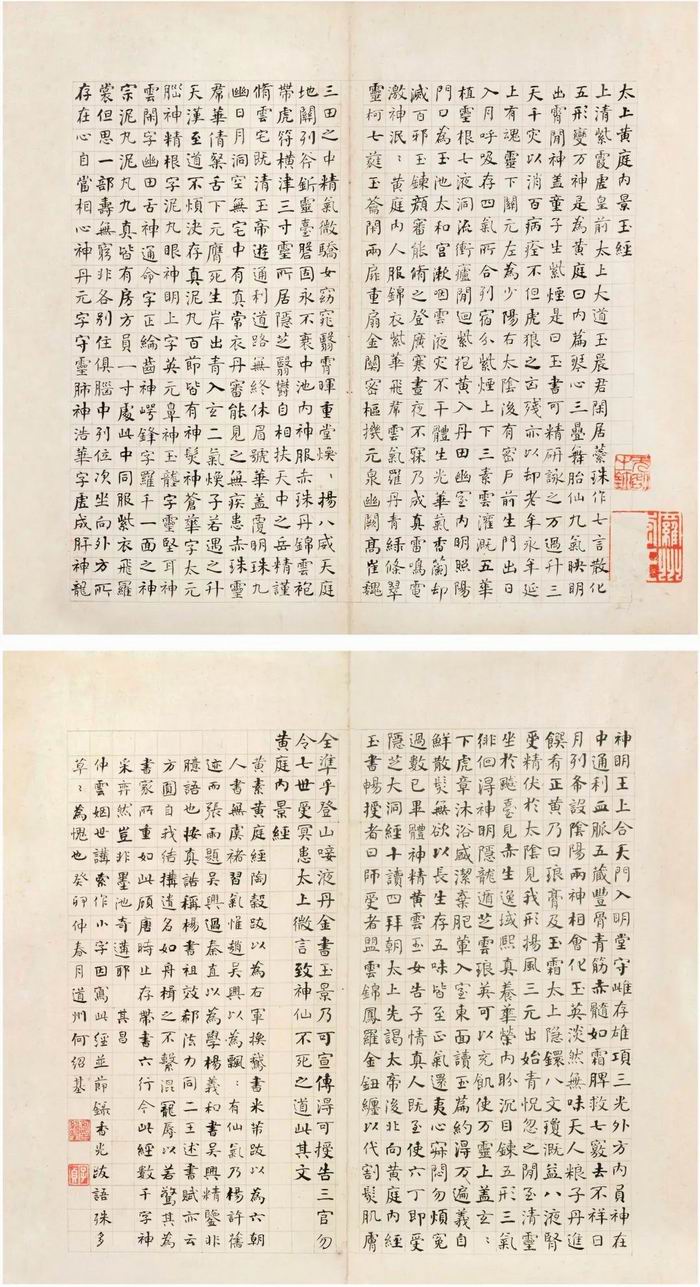 太上黃庭內景玉經
上清紫霞虛皇前太上大道玉晨君閑居蘂珠作七言散化
五形變万神是為黃庭曰內篇琴心三疊舞胎仙九氣映明
出霄間神蓋童子生紫煙是曰玉書可精研詠之万過升三
天千灾以消百病痊不但虎狼之㐫殘亦以却老年永年延
上有魂靈下關元左為少陽右太陰後有密戶前生門出日
入月呼吸存四氣所合列宿分紫煙上下三素雲灌溉五華
植靈根七液洞流衝廬間迴紫抱黃入丹田幽室內明照陽
門口為玉池太和官漱咽雲液灾不干體生光華氣香蘭却
滅百邪玉鍊顏審能脩之登廣寒晝夜不寐乃成真雷鳴電
激神泯〻黃庭內人服錦衣紫華飛羣雲氣羅丹青綠條翠
靈柯七蕤玉籥閉兩扉重扇金關密樞機元泉幽闕高崔巍
三田之中精氣微驕女窈窕翳霄暉重堂煥〻揚八威天庭
地關列谷釿靈臺磐固永不衰中池內神服赤珠丹錦雲袍
帶虎符橫津三寸靈所居隱芝翳鬱自相扶天中之岳精謹
脩雲宅既清玉帝遊通利道路無終休眉號華蓋覆明珠九
幽日月洞空無宅中有真常衣丹審能見之無疾患赤珠靈
帬華倩粲舌下元膺死生岸出青入玄二氣煥子若遇之升
天漢至道不煩決存真泥丸百節皆有神髮神蒼華字太元
腦神精根字泥丸眼神明上字英元鼻神玉壟字靈堅耳神
雲閑字幽田舌神通命字正綸齒神崿鋒字羅千一面之神
宗泥丸泥丸九真皆有房方員一寸處此中同服紫衣飛羅
裳但思一部壽無窮非各別住俱腦中列位次坐向外方所
存在心自當相心神丹元字守靈肺神浩華字虛成肝神龍
神明王上合天門入明堂守雌存雄項三光外方內員神在
中通利血脈五藏豐骨青筋赤髓如霜脾救七竅去不祥日
月列布設陰陽兩神相會化玉英淡然無味天人粮子丹進
饌肴正黃乃曰琅膏及玉霜太上隱鐶八文瓊溉益八液腎
受精伏於太陰見我形揚風三元出始青怳忽之間至清靈
坐於飈臺見赤生逸域熙真養華榮內盼沉目鍊五形三氣
徘徊得神明隱龍遁芝雲琅英可以充飢使万靈上蓋玄〻
下虎章沐浴盛潔棄肥葷入室東面讀玉篇約得万遍義自
鮮散髮無欲以長生存五味皆至正氣還夷心寂悶勿煩冤
過數已畢體神精黃雲玉女告子情真人既至使六丁即受
隱芝大洞經十讀四拜朝太上先謁太帝後北向黃庭內經
玉書暢授者曰師受者盟雲錦鳳羅金鈕纏以代割髮肌膚
全準乎登山唼液丹金書玉景乃可宣傳得可授告三官勿
令七世受冥患太上微言致神仙不死之道此其文
黃庭內景經
黃素黃庭經陶穀跋以為右軍換鵞書米芾跋以為六朝
人書無虞褚習氣惟趙吳興以為飄〻有仙氣乃楊許舊
迹而張雨題吳興過秦直以為學楊義和書吳興精鑒非
臆語也按真誥稱楊書祖效郗法力同二王述書賦亦云
方圓自我結構遺名如舟楫之不繫混寵辱以若驚其為
書家所重如此顧唐時止存帶書六行今此經數千字神
采弈然豈非墨池奇遘耶　其昌
仲雲姻世講索作小字因寫此經並節錄香光跋語殊多
草〻為愧也癸卯仲春月道州何紹基